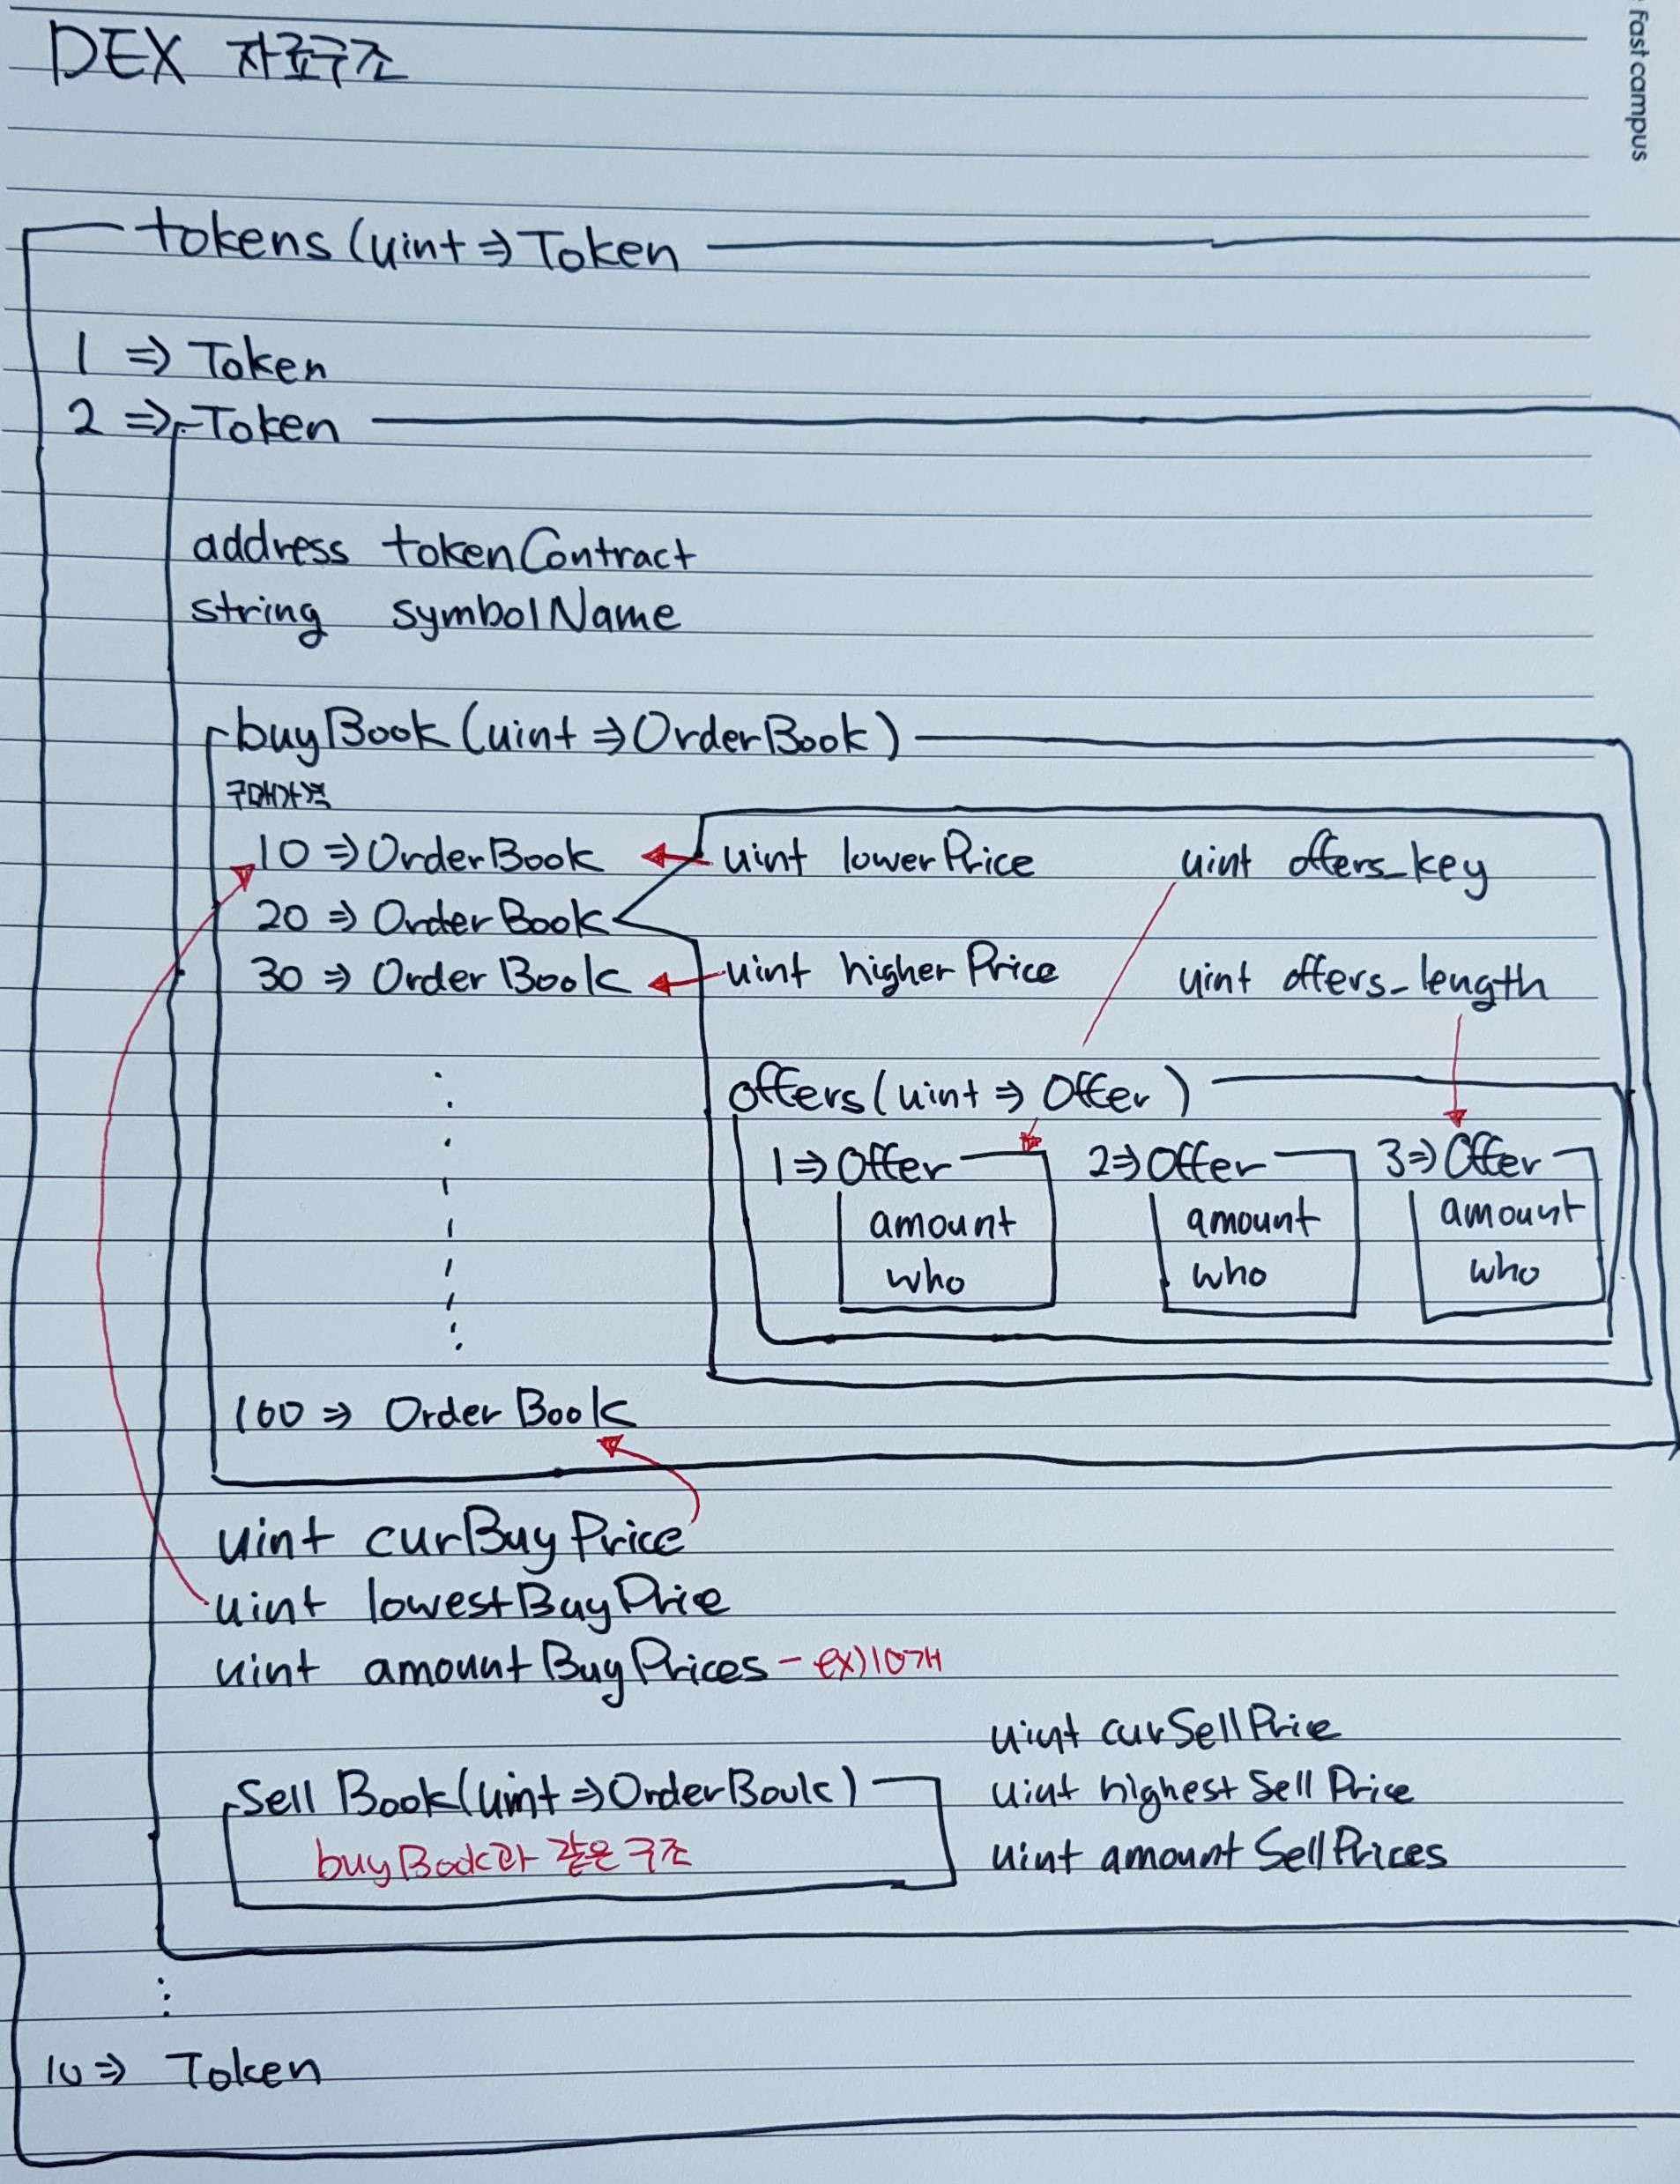 Fast campus
DEX 자료구조
tokens (uint ⇒ Token
1 ⇒ Token
2 ⇒ Token
address tokenContract
string symbolName
buyBook (uint ⇒ OrderBook)
구매가격
10 ⇒ OrderBook
20 ⇒ OrderBook
30 ⇒ OrderBook
uint lowerPrice
uint higherPrice
uint offers_key
uint offers_length
offers (uint ⇒ Offer)
1 ⇒ Offer
amount
who
2 ⇒ Offer
amount
who
3 ⇒ Offer
amount
who
100 ⇒ OrderBook
uint curBuyPrice
uint lowestBuyPrie
uint amountBuyPrices - ex) 10개
Sell Book (uint ⇒ OrderBook)
buyBook과 같은 구조
uint curSellPrie
uint highestSellPrice
uint amountSellPrices
10 ⇒ Token